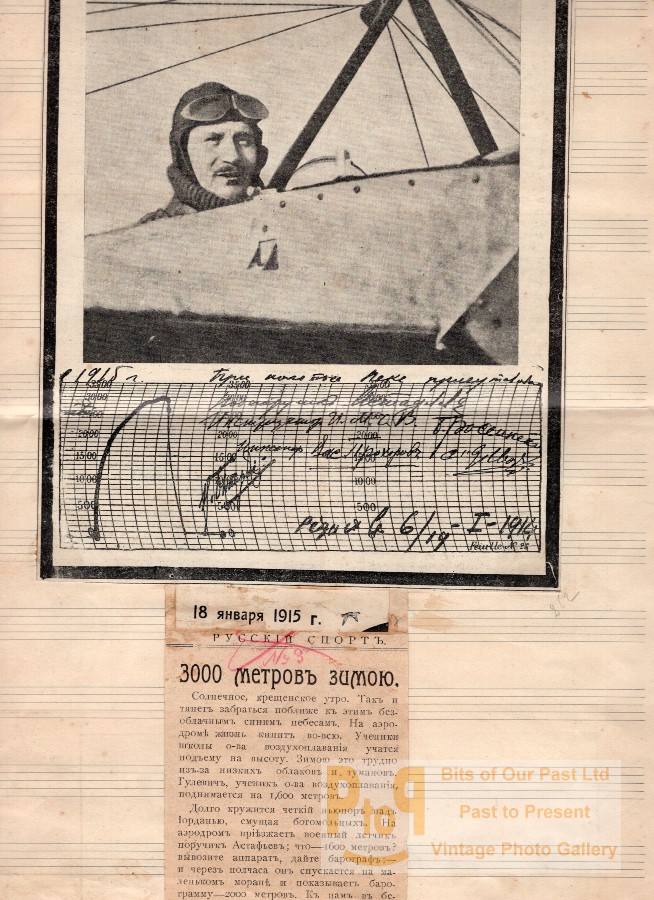 1915 г. При полетѣ
3500 3500 3500
3000
2000 2000 2000
1500 1500 1500
1000 1000
500 500 500
0 0
6/19-I-1915
18 января 1915 г.
РУССКІЙ СПОРТЪ.
№3
3000 метровъ зимою.
Солнечное, крещенское утро. Такъ и
тянетъ забраться поближе къ этимъ без-
облачнымъ синимъ небесамъ. На аэро-
дромѣ жизнь кипитъ во-всю. Ученики
школы о-ва воздухоплаванія учатся
подъему на высоту. Зимою это трудно
изъ-за низкихъ облаковъ и тумановъ.
Гулевичъ, ученикъ о-ва воздухоплаванія,
поднимается на 1,600 метровъ.
Долго кружится четкій ньюпоръ надъ
Іорданью, смущая богомольныхъ. На
аэродромъ пріѣзжаетъ военный летчикъ
поручикъ Астафьевъ; что—1600 метровъ?
вывозите аппаратъ, дайте барографъ:—
и черезъ полчаса онъ спускается на ма-
ленькомъ моранѣ и показываетъ баро-
грамму—2000 метровъ. Къ намъ въ бе-
PoP
Bits of Our Past Ltd
Past to Present
Vintage Photo Gallery